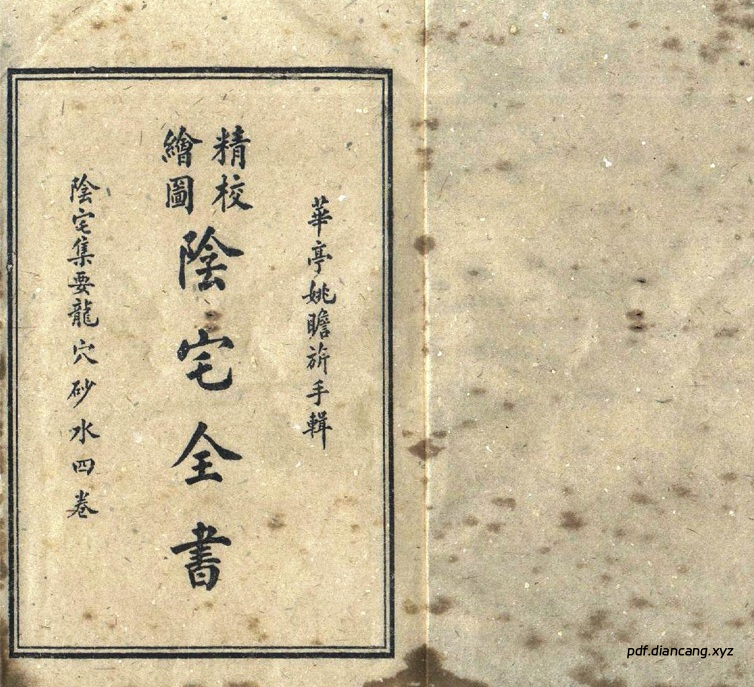 華亭姚瞻旂手輯
精校
繪圖
陰宅全書
陰宅集要龍穴砂水四卷
pdf.diancang.xyz